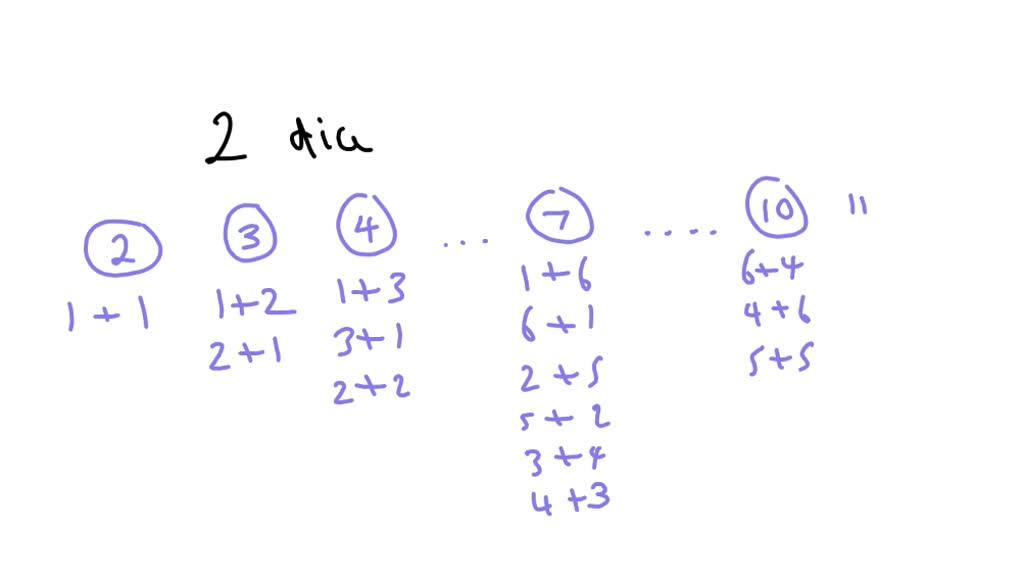 2 dice
2 3 4 ... 7 .... 10 11
1 + 1 1+2 1+3 1+6 6+4
2+1 3+1 6+1 4+6
2+2 2+5 5+5
5+2
3+4
4+3